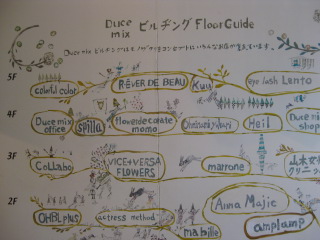 Duce mix ビルヂング Floor Guide
Duce mix ビルヂングは
5F
colorful color
RÊVER DE BEAU
Kuu
eye lash Lento
4F
Duce mix office
spilla
flower decorate momo
Heil
Duce mix shop
3F
CoLLabo
VICE+VERSA FLOWERS
marrone
山木
クリニック
2F
OHBL PLUS
actress method
ma bille
Anna Magic
amplamp